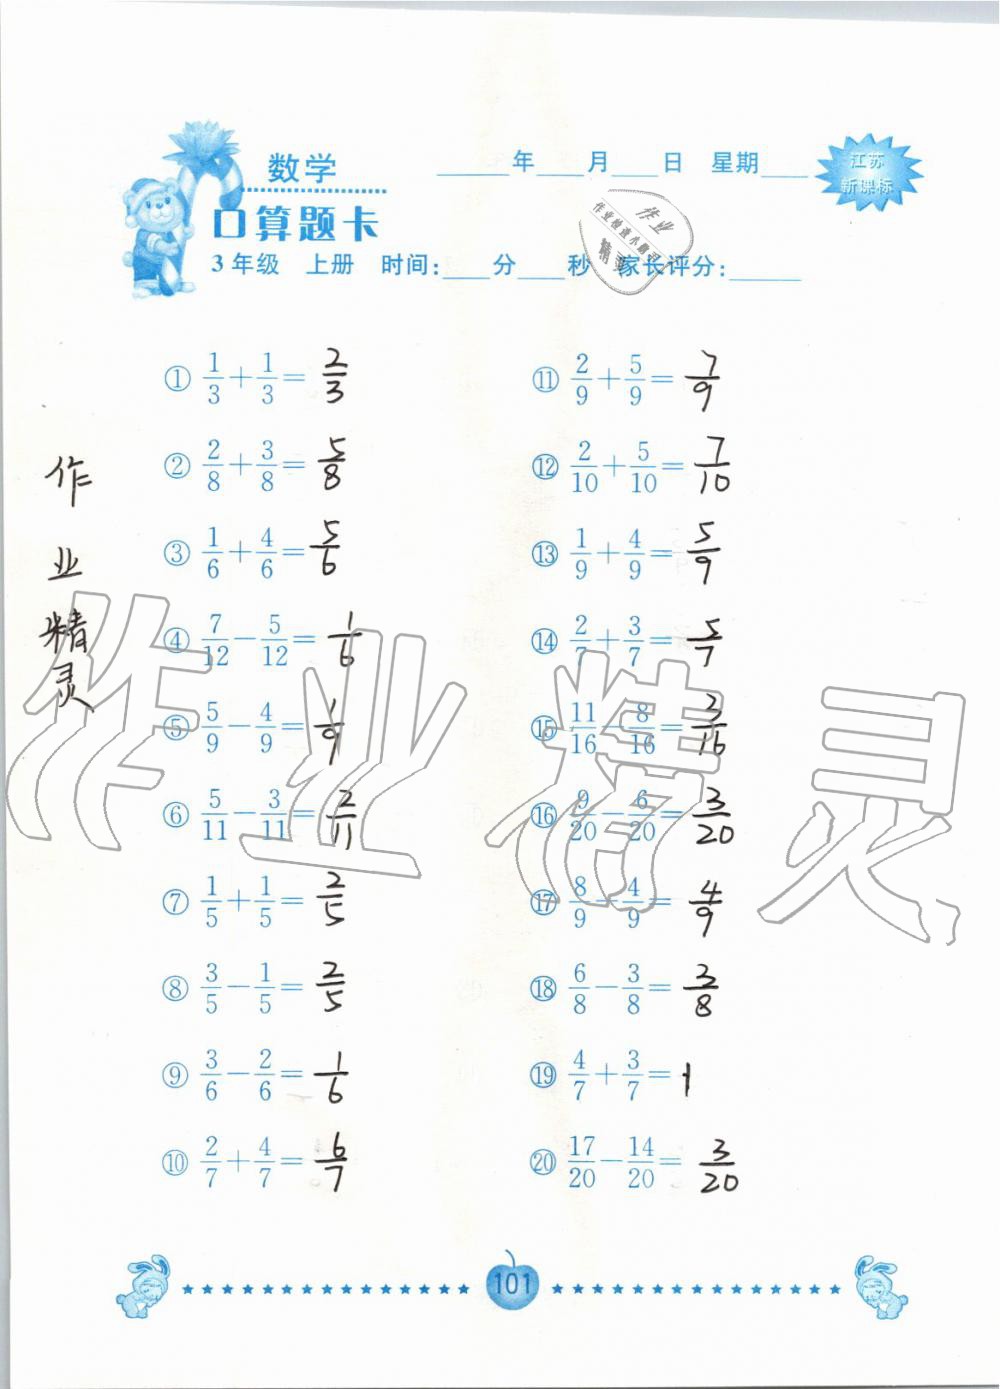 数学
____年____月____日 星期____
江苏
新课标
口算题卡
3年级 上册 时间:____分____秒 家长评分:____
作业
作业检查小助手
精灵
① 1/3+1/3= 2/3
② 2/8+3/8= 5/8
③ 1/6+4/6= 5/6
④ 7/12-5/12= 1/6
⑤ 5/9-4/9= 1/9
⑥ 5/11-3/11= 2/11
⑦ 1/5+1/5= 2/5
⑧ 3/5-1/5= 2/5
⑨ 3/6-2/6= 1/6
⑩ 2/7+4/7= 6/7
⑪ 2/9+5/9= 7/9
⑫ 2/10+5/10= 7/10
⑬ 1/9+4/9= 5/9
⑭ 2/7+3/7= 5/7
⑮ 11/16-8/16= 3/16
⑯ 9/20-6/20= 3/20
⑰ 8/9-4/9= 4/9
⑱ 6/8-3/8= 3/8
⑲ 4/7+3/7= 1
⑳ 17/20-14/20= 3/20
作业精灵
作业精灵
101